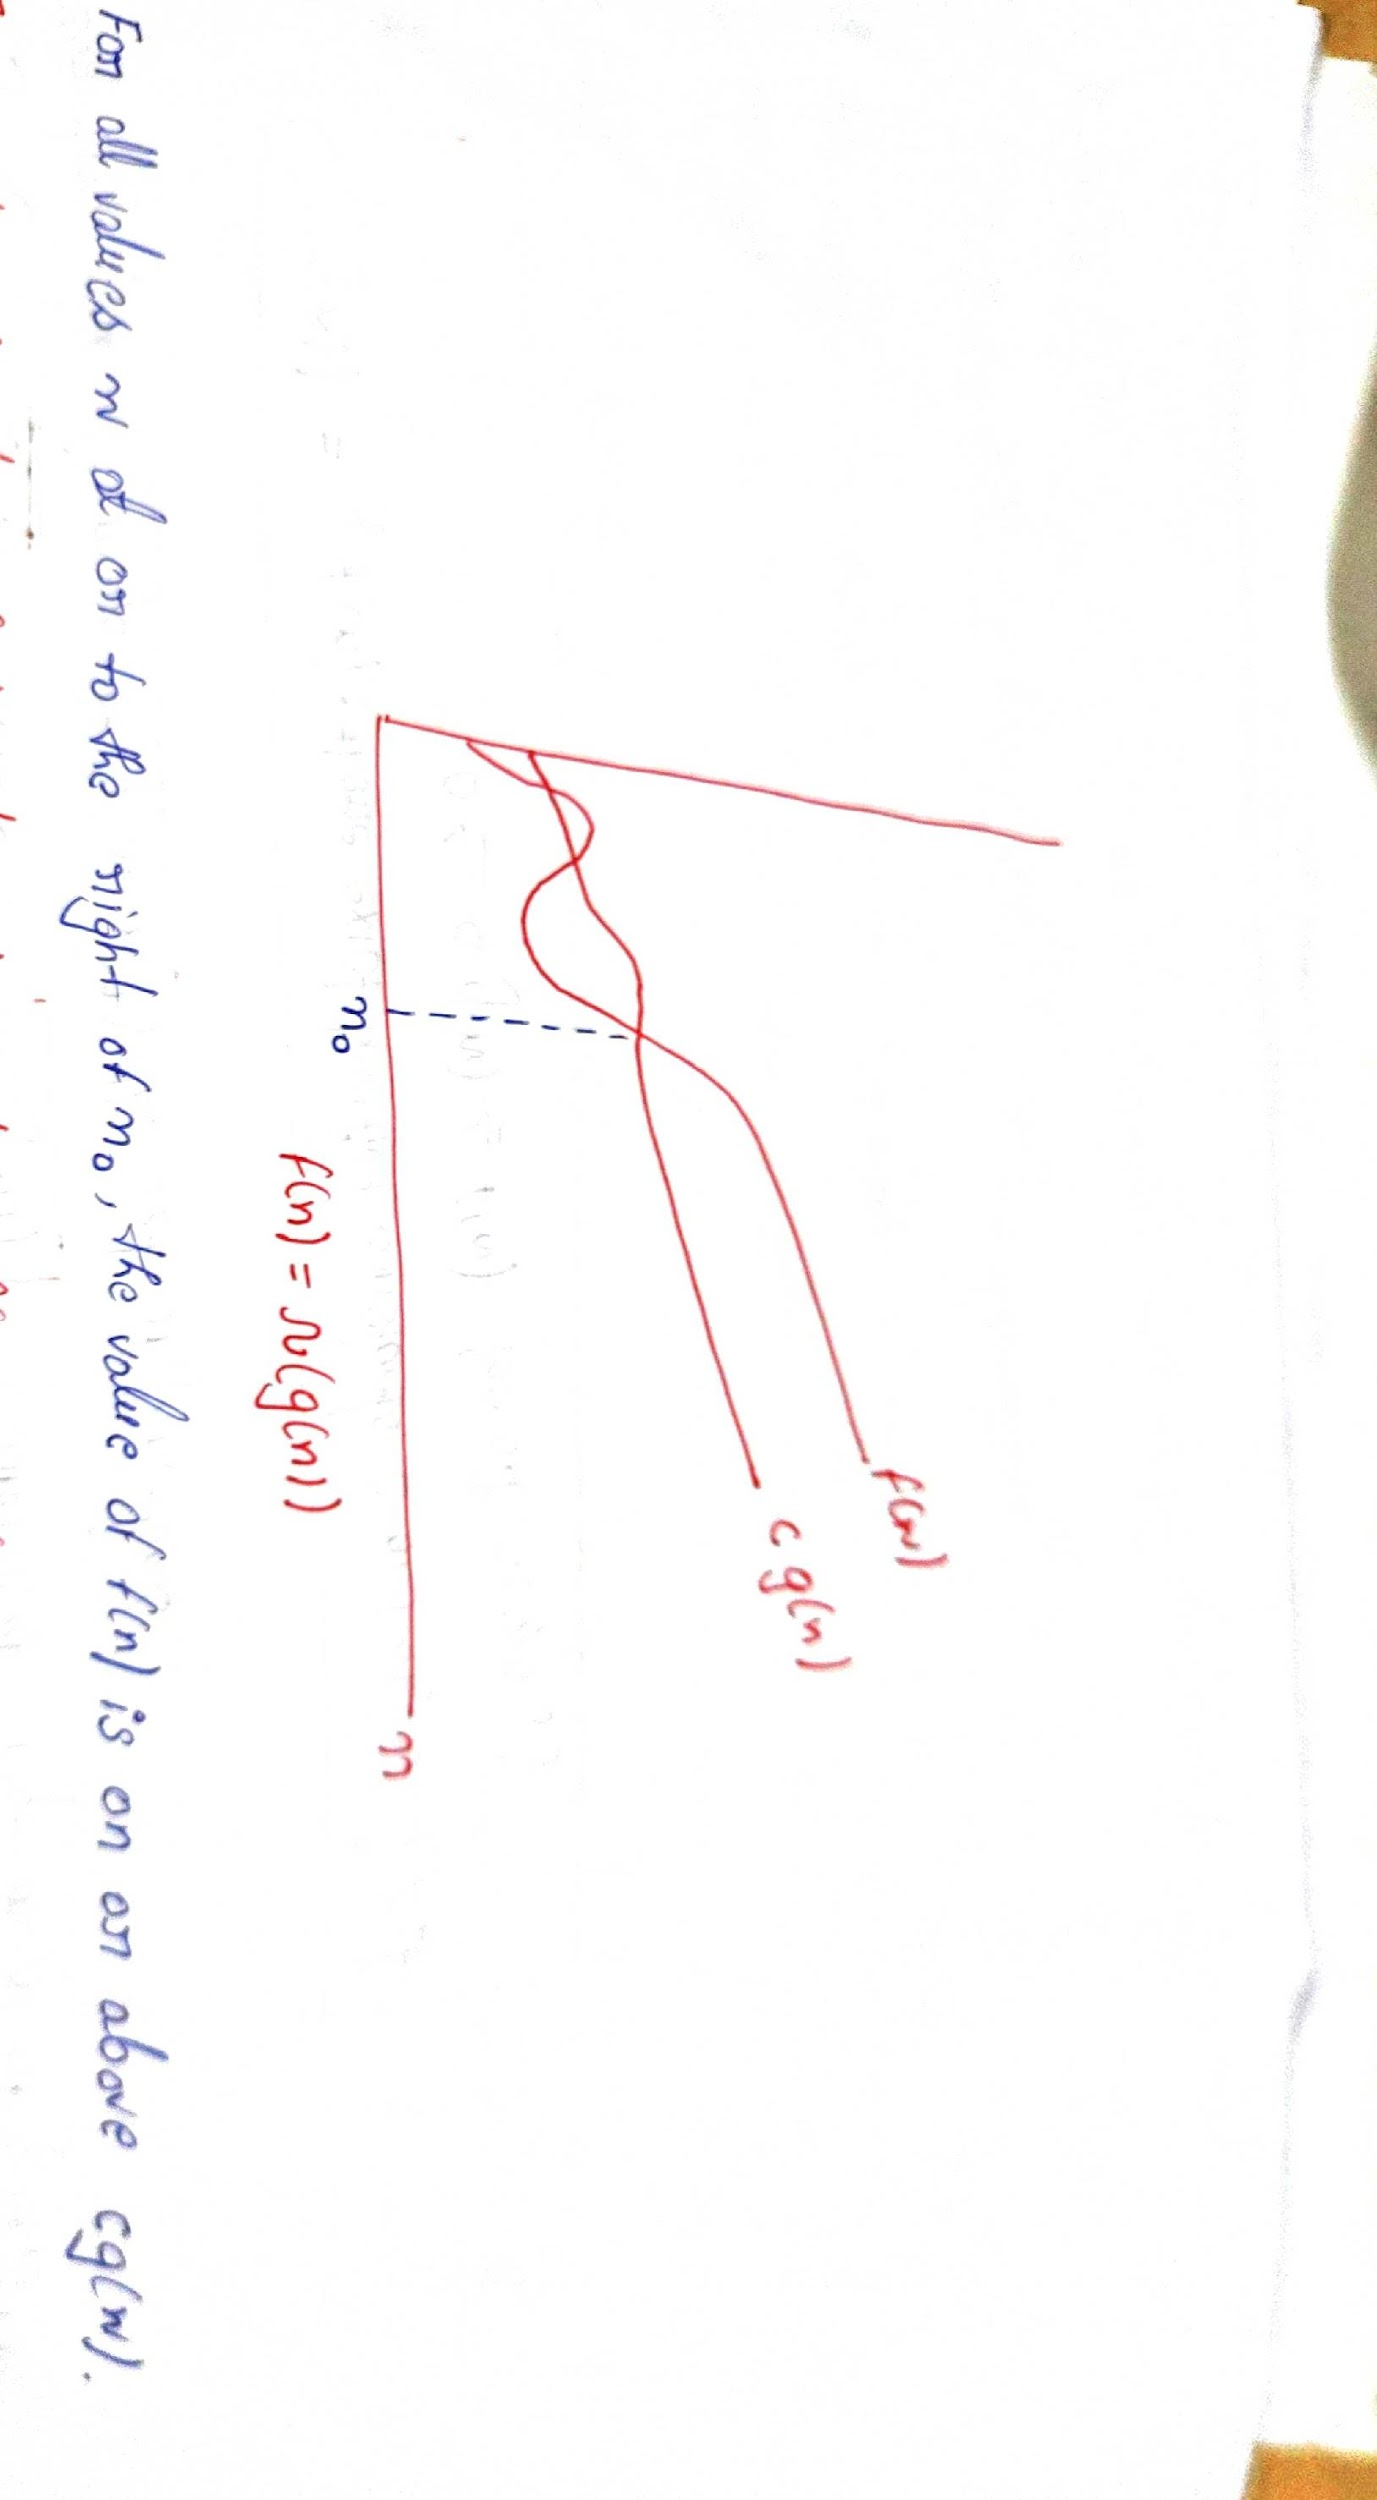 f(n)
c g(n)
n
n₀
f(n) = Ω(g(n))
For all values n at or to the right of n₀, the value of f(n) is on or above cg(n).